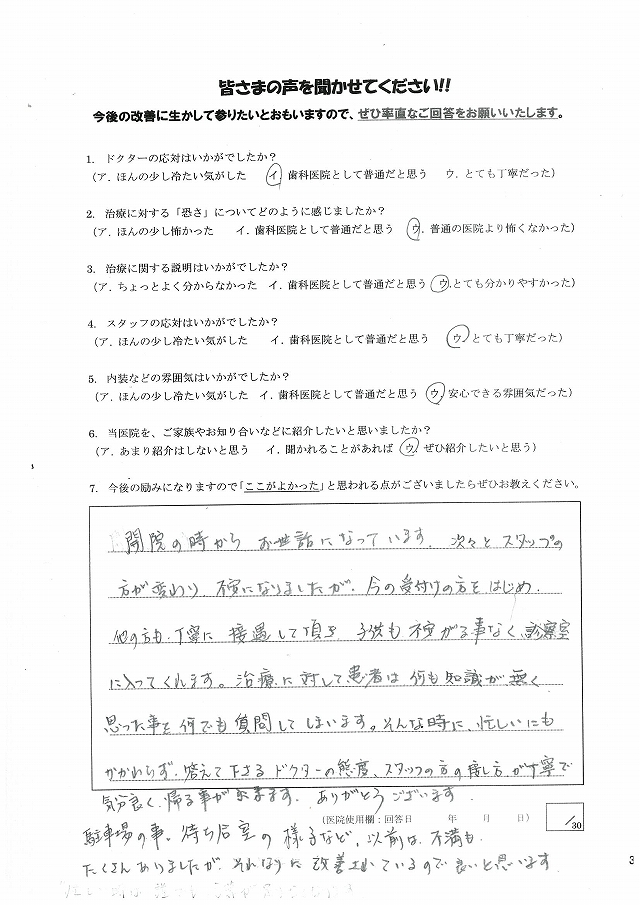 皆さまの声を聞かせてください!!
今後の改善に生かして参りたいとおもいますので、ぜひ率直なご回答をお願いいたします。
1. ドクターの応対はいかがでしたか？
（ア. ほんの少し冷たい気がした　イ. 歯科医院として普通だと思う　ウ. とても丁寧だった）
2. 治療に対する「恐さ」についてどのように感じましたか？
（ア. ほんの少し怖かった　イ. 歯科医院として普通だと思う　ウ. 普通の医院より怖くなかった）
3. 治療に関する説明はいかがでしたか？
（ア. ちょっとよく分からなかった　イ. 歯科医院として普通だと思う　ウ. とても分かりやすかった）
4. スタッフの応対はいかがでしたか？
（ア. ほんの少し冷たい気がした　イ. 歯科医院として普通だと思う　ウ. とても丁寧だった）
5. 内装などの雰囲気はいかがでしたか？
（ア. ほんの少し冷たい気がした　イ. 歯科医院として普通だと思う　ウ. 安心できる雰囲気だった）
6. 当医院を、ご家族やお知り合いなどに紹介したいと思いましたか？
（ア. あまり紹介はしないと思う　イ. 聞かれることがあれば　ウ. ぜひ紹介したいと思う）
7. 今後の励みになりますので「ここがよかった」と思われる点がございましたらぜひお教えください。
開院の時から お世話になっています. 次々と スタッフの
方が変わり 不安になりましたが、今の受付けの方をはじめ.
他の方も、丁寧に 接遇して頂き 子供も 不安がる事なく、診察室
に入ってくれます。治療に対して患者は 何も知識が無く
思った事を何でも質問してしまいます。そんな時に、忙しいにも
かかわらず、答えて下さる ドクターの態度、スタッフの方の接し方が丁寧で
気分良く、帰る事が出来ます. ありがとうございます.
（医院使用欄：回答日　年　月　日）
/30
駐車場の事、待ち合室の 様子など、以前は 不満も
たくさんありましたが、それなりに 改善されているので良いと思います.
3